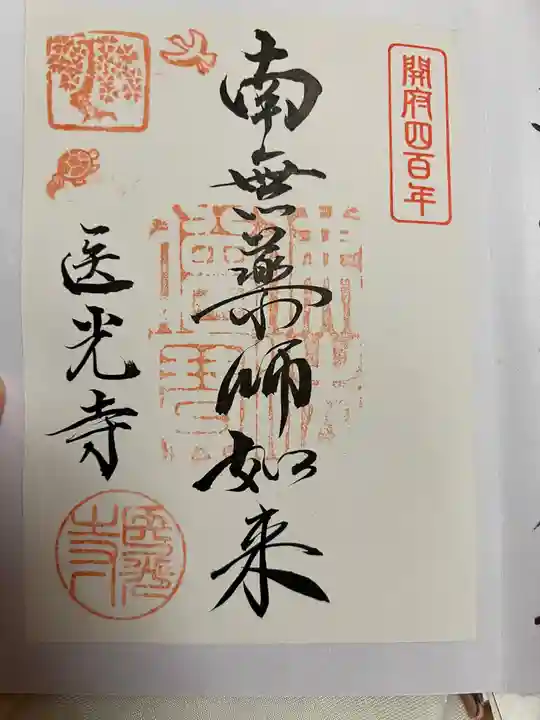 開府四百年
南無薬師如来
医光寺